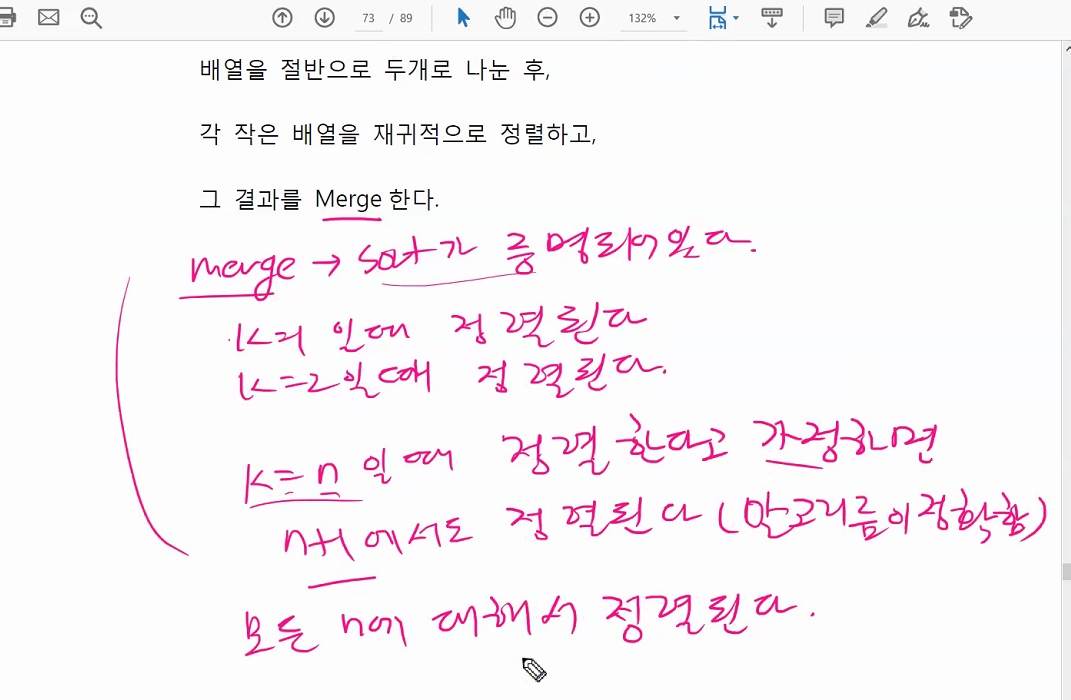 73 / 89 132%
배열을 절반으로 두개로 나눈 후,
각 작은 배열을 재귀적으로 정렬하고,
그 결과를 Merge 한다.
merge → sort가 증명되어있다.
K=1 일때 정렬된다
K=2일때 정렬된다.
K=n 일때 정렬한다고 가정하면
n+1에서도 정렬된다 (알고리즘이 정확함)
모든 n에 대해서 정렬된다.